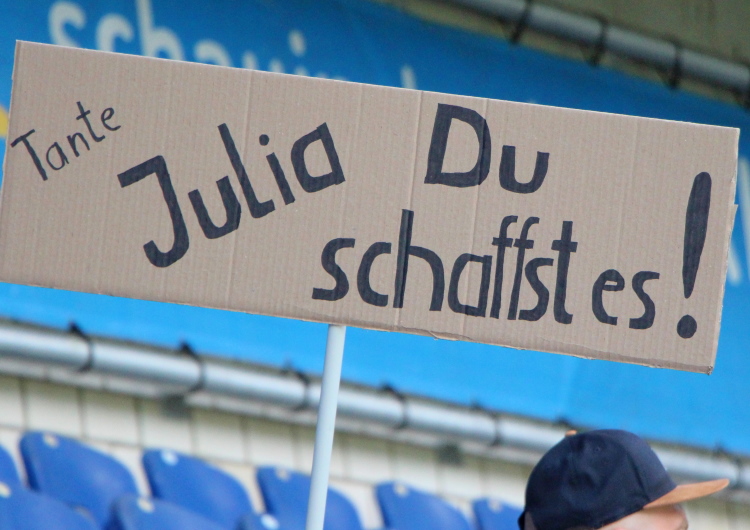 Tante
Julia Du
schaffst es!